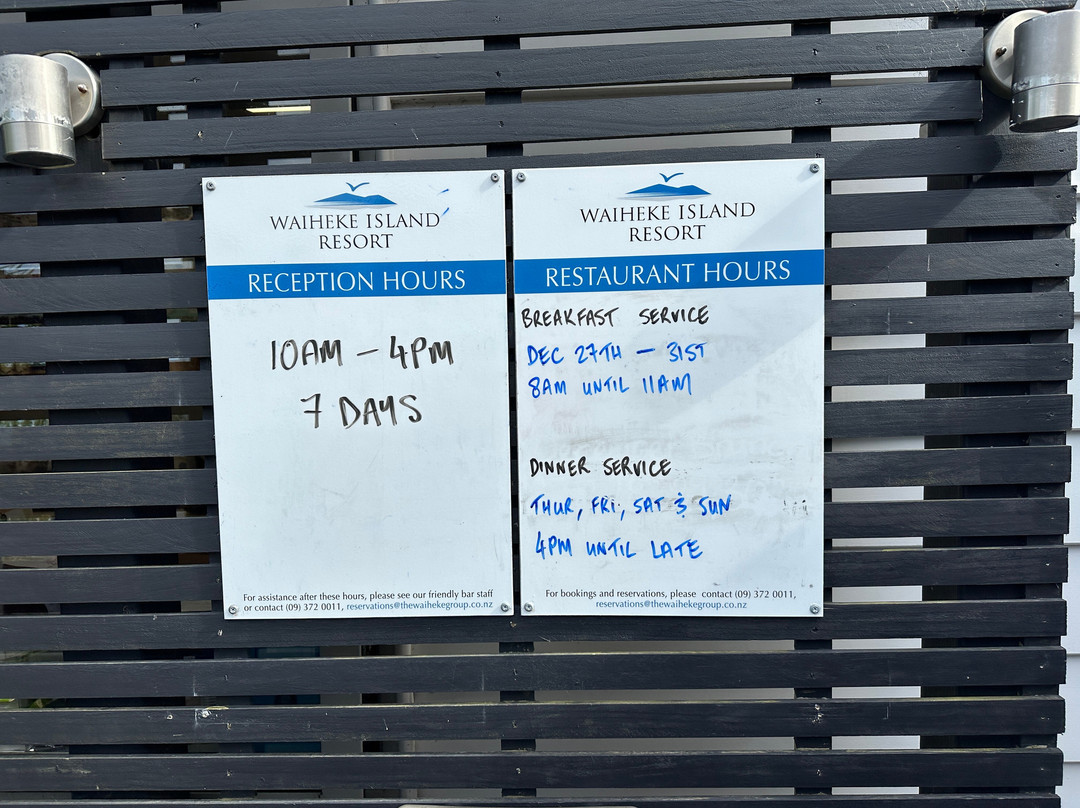 WAIHEKE ISLAND
RESORT
RECEPTION HOURS
10AM - 4PM
7 DAYS
For assistance after these hours, please see our friendly bar staff
or contact (09) 372 0011, reservations@thewaihekegroup.co.nz
WAIHEKE ISLAND
RESORT
RESTAURANT HOURS
BREAKFAST SERVICE
DEC 27TH - 31ST
8AM UNTIL 11AM
DINNER SERVICE
THUR, FRI, SAT & SUN
4PM UNTIL LATE
For bookings and reservations, please contact (09) 372 0011,
reservations@thewaihekegroup.co.nz